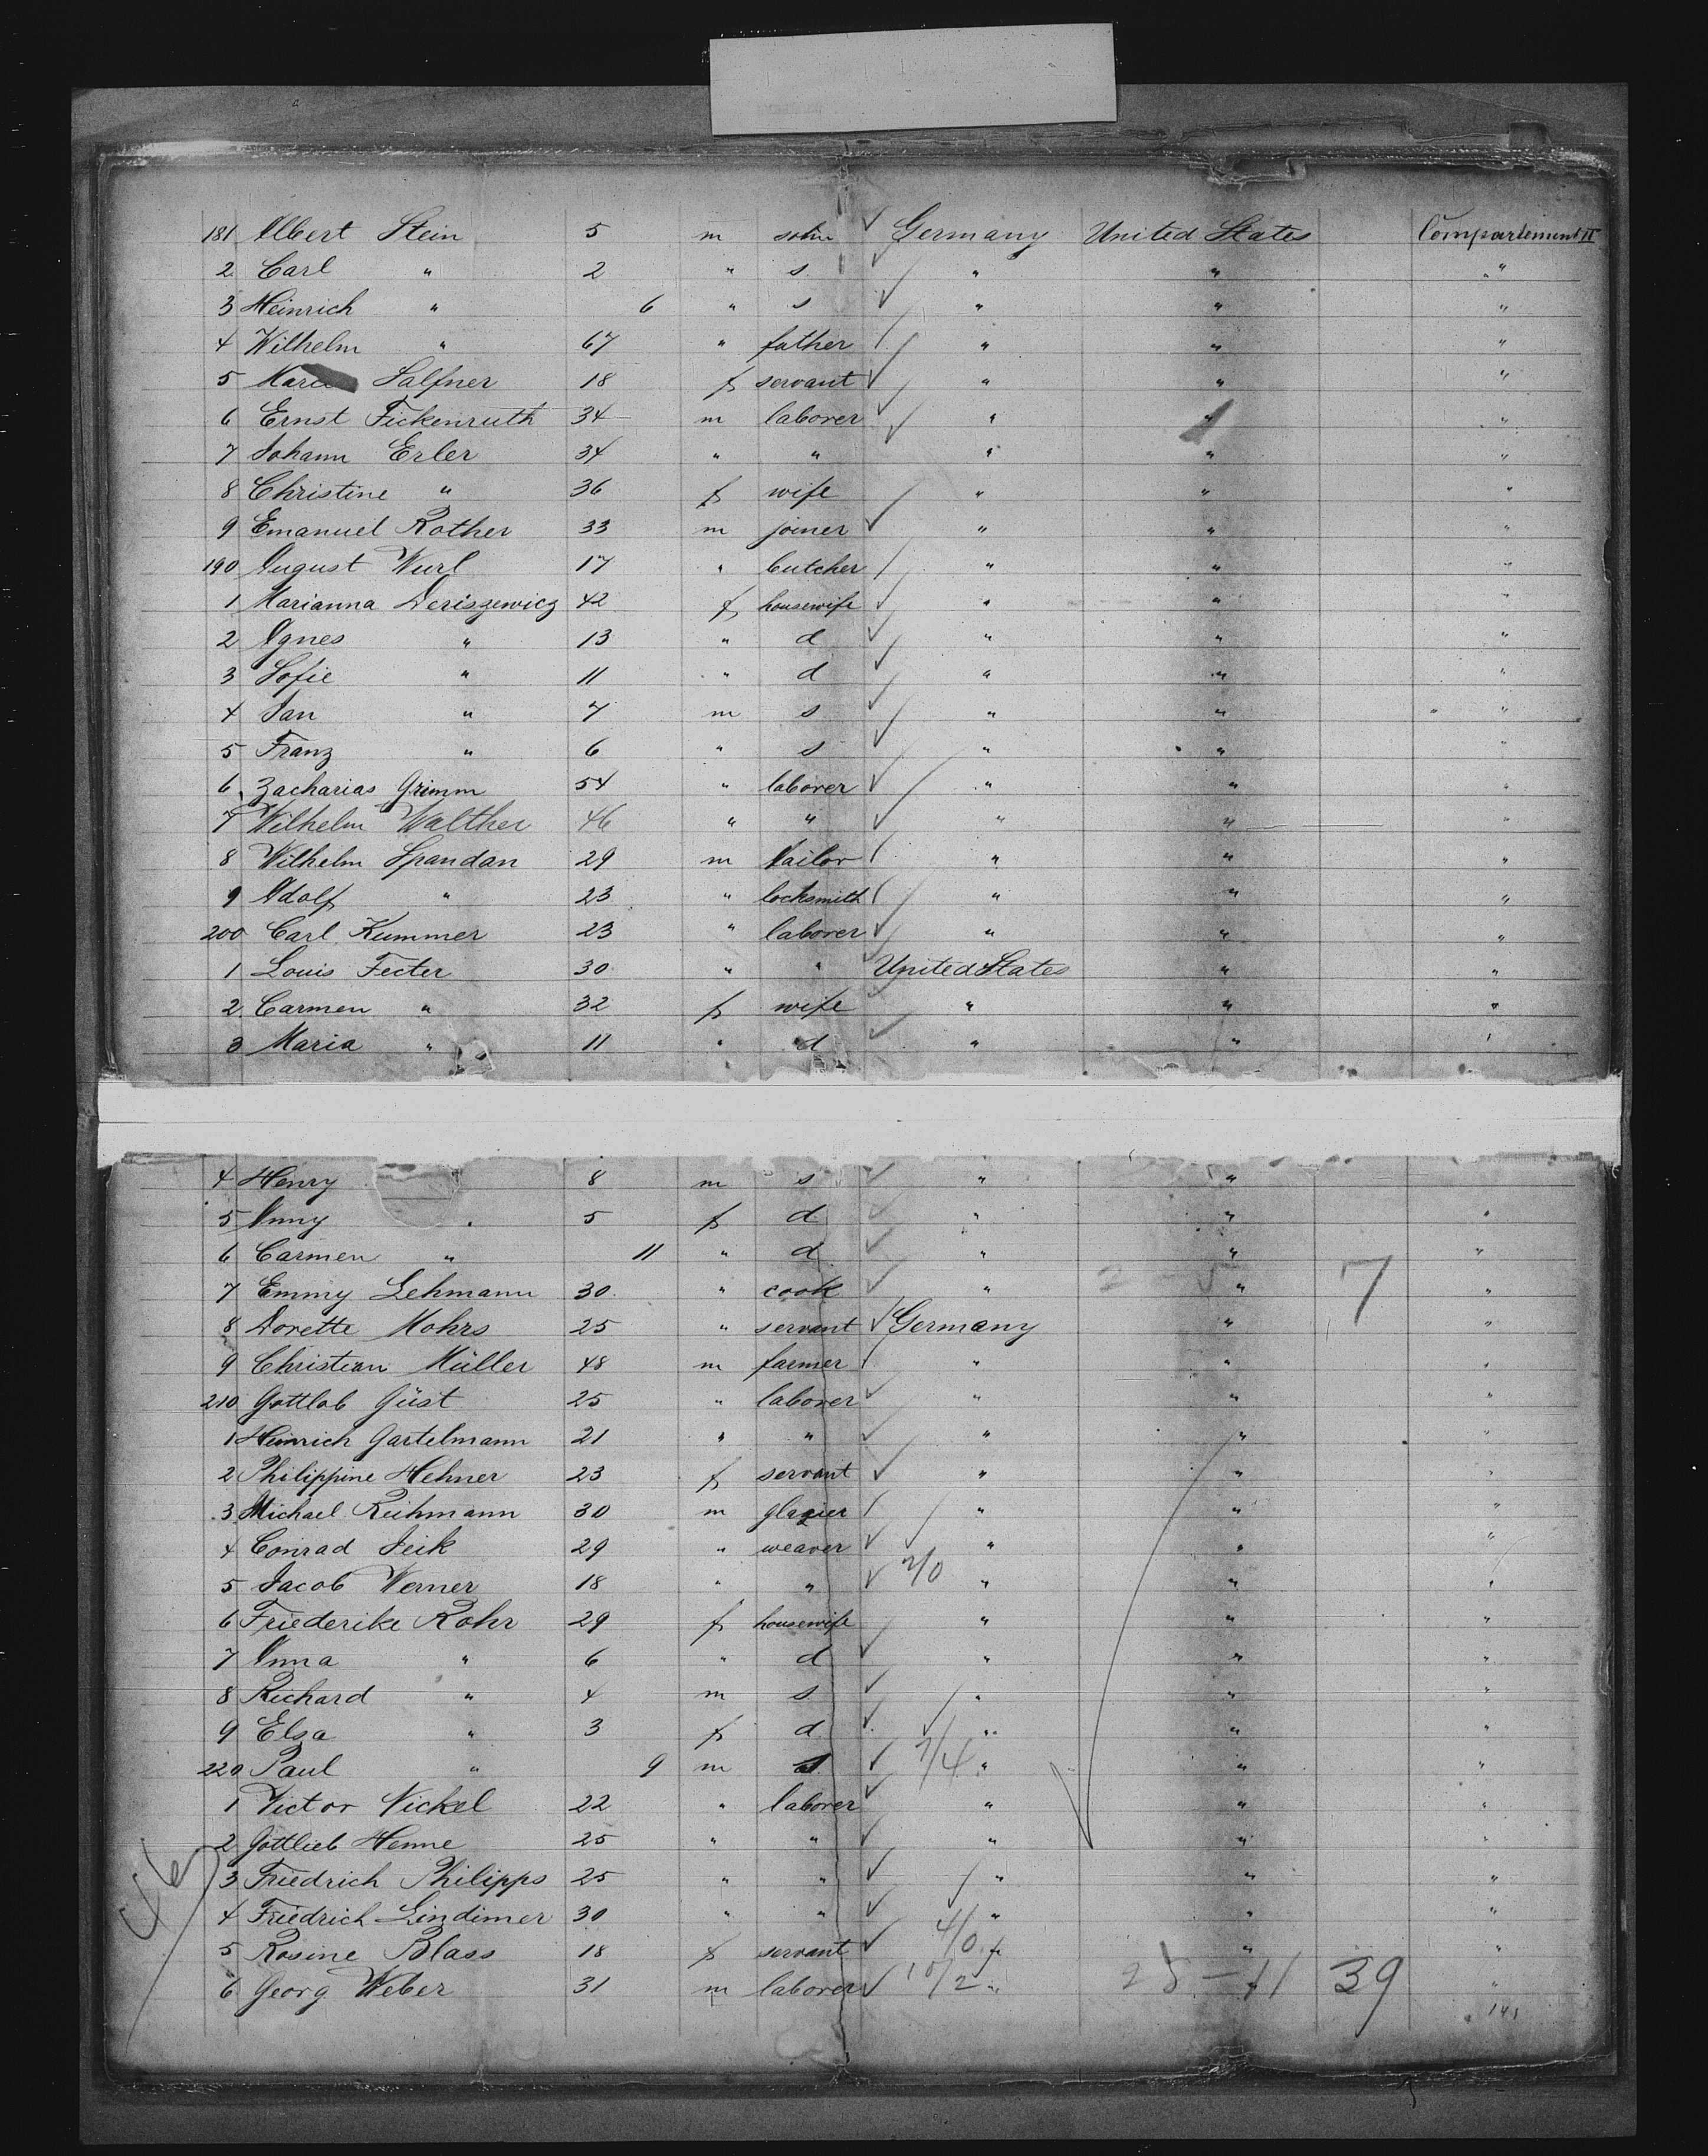 181 Albert Stein 5 m sohn Germany United States Compartement II
2 Carl " 2 " s " " "
3 Heinrich " 6 " s " " "
4 Wilhelm " 67 " father " " "
5 Salfner 18 f servant " " "
6 Ernst Fickenruth 34 m laborer " " "
7 Johann Erler 34 " " " " "
8 Christine " 36 f wife " " "
9 Emanuel Rother 33 m joiner " " "
190 August Wurl 17 " butcher " " "
1 Marianna Deriszewicz 42 f housewife " " "
2 Agnes " 13 " d " " "
3 Sofie " 11 " d " " "
4 Jan " 7 m s " " "
5 Franz " 6 " s " " "
6 Zacharias Grimm 54 " laborer " " "
7 Wilhelm Walther 46 " " " " "
8 Wilhelm Spandan 29 m tailor " " "
9 Adolf " 23 " locksmith " " "
200 Carl Kummer 23 " laborer " " "
1 Louis Fecter 30 " " United States " "
2 Carmen " 32 f wife " " "
3 Maria " 11 " d " " "
4 Henry 8 m s " "
5 Anny " 5 f d " " "
6 Carmen " 11 " d " " "
7 Emmy Lehmann 30 " cook " " 7 "
8 Dorette Mohrs 25 " servant Germany " "
9 Christian Müller 48 m farmer " " "
210 Gottlob Güst 25 " laborer " " "
1 Heinrich Gartelmann 21 " " " " "
2 Philippine Hehner 23 f servant " " "
3 Michael Reihmann 30 m glazier " " "
4 Conrad Jeik 29 " weaver " " "
5 Jacob Werner 18 " " 7/0 " " "
6 Friederike Rohr 29 f housewife " " "
7 Anna " 6 " d " " "
8 Richard " 4 m s " " "
9 Elsa " 3 f d " " "
220 Paul " 9 m s 7/4 " " "
1 Victor Nickel 22 " laborer " " "
2 Gottlieb Henne 25 " " " " "
3 Friedrich Philipps 25 " " " " "
4 Friedrich Lindimer 30 " " " " "
5 Rosine Blass 18 f servant 4/0 " " "
6 Georg Weber 31 m laborer 10/2 " " 39 "
46